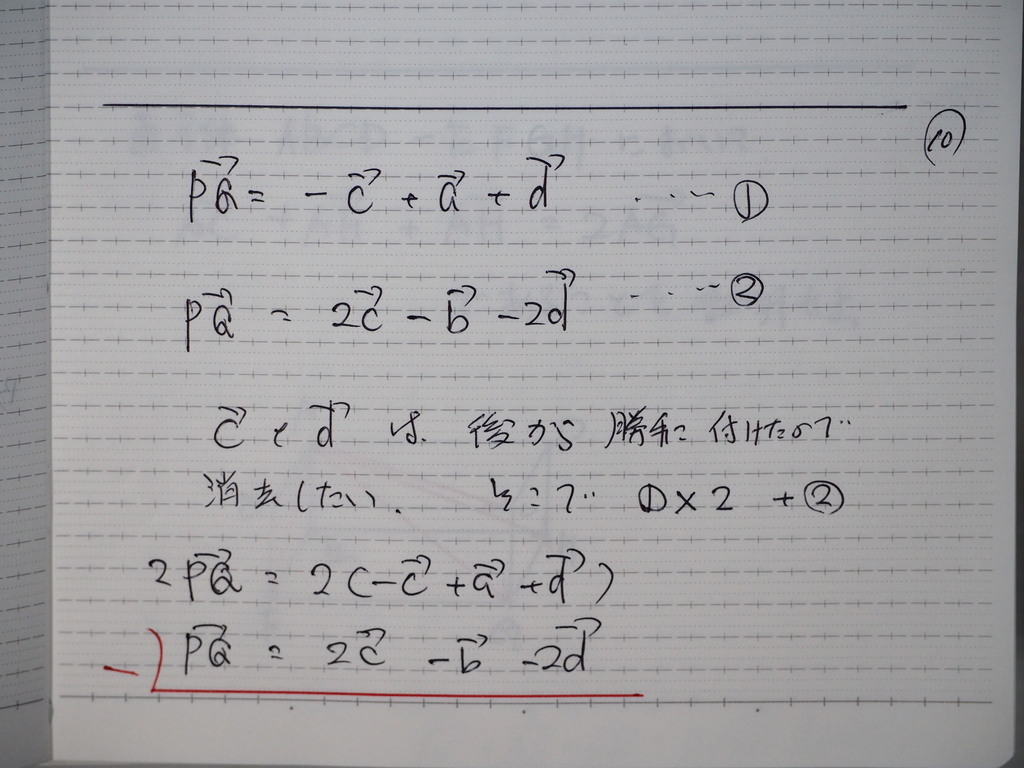 ⑩
PQ→ = -c→ + a→ + d→ ..... ①
PQ→ = 2c→ - b→ - 2d→ ..... ②
c→ と d→ は、後から 勝手に 付けたので
消去したい. そこで ①×2 + ②
2PQ→ = 2(-c→ + a→ + d→)
-) PQ→ = 2c→ - b→ - 2d→